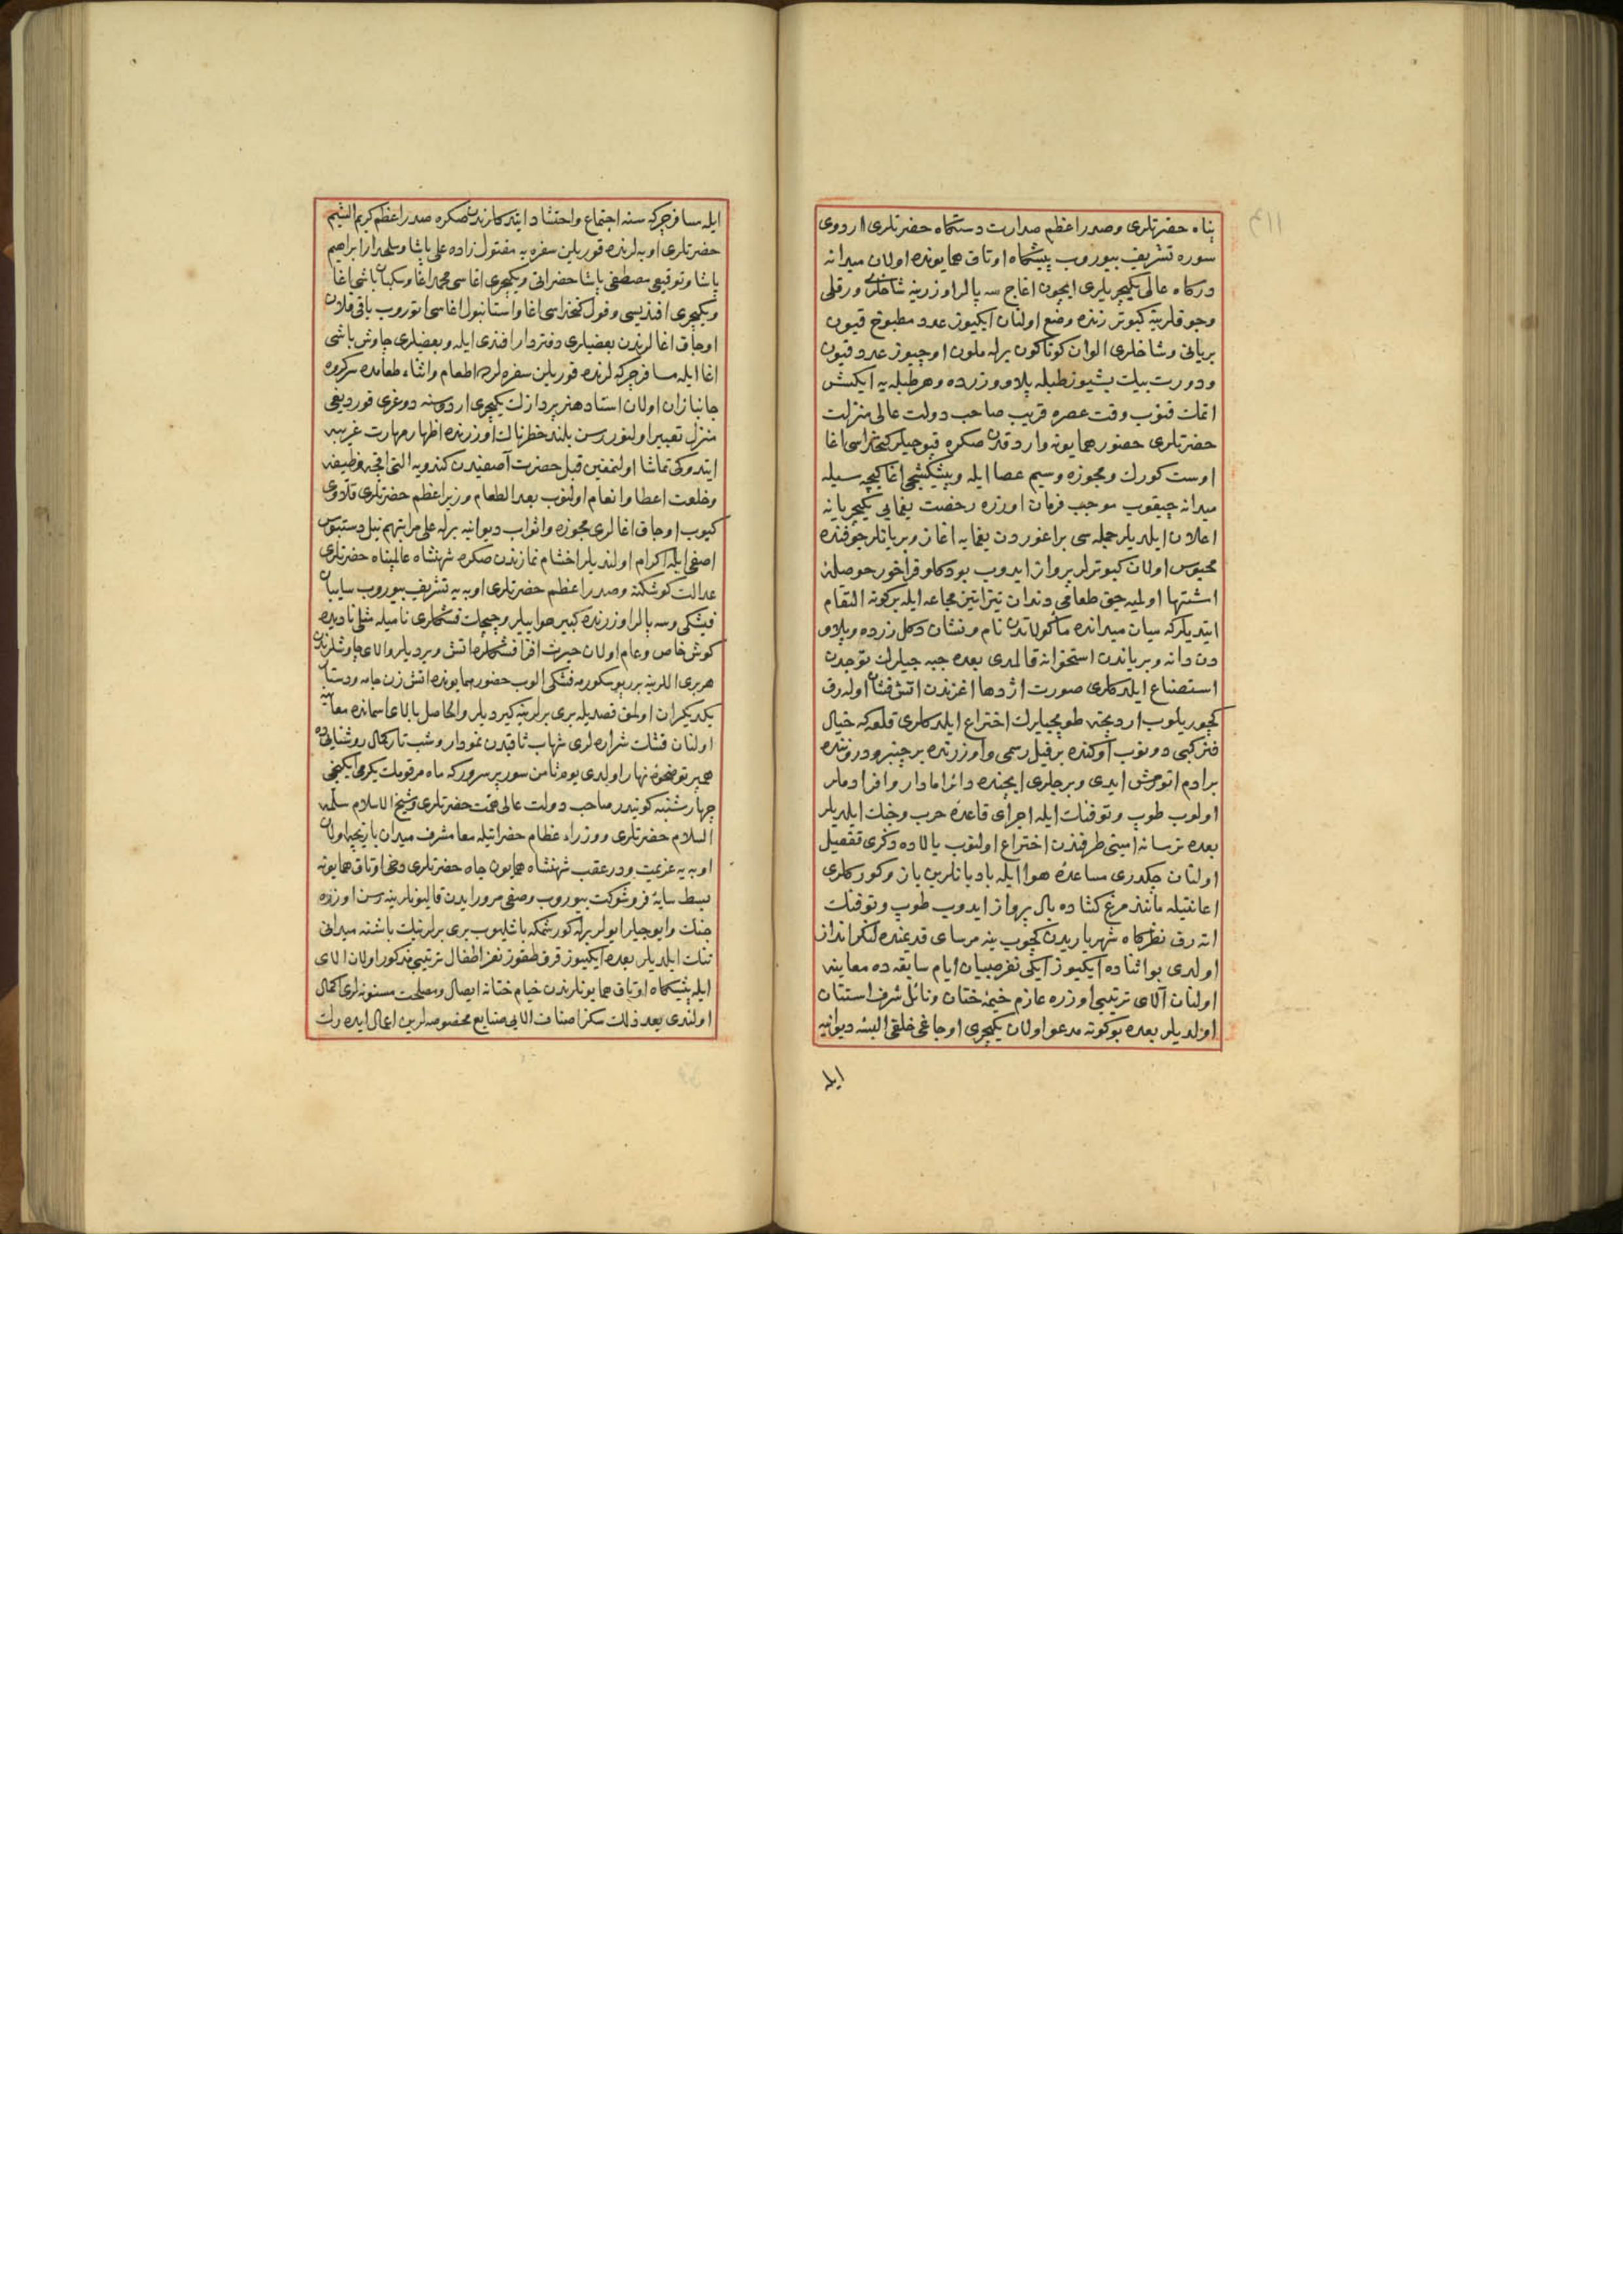 پناه حضرتلری وصدر اعظم صدارت دستكاه حضرتلری اردوی
سوره تشریف بیوروب پیشكاه اوتاق همایونده اولان میدانه
دركاه عالی یكیچریلری ایچون اغاج سه پالر اوزرینه شاخلری ورقلی
وجوقلرینه كبوتر زنده وضع اولنان ایكیوز عدد مطبوخ قیون
بریانی وشاخلری الوان كوناكون برله ملون اوچیوز عدد قیون
ودورت بیك بشیوز طبله پلاو وزرده وهر طبله یه ایكیشر
اتمك قنوب وقت عصره قریب صاحب دولت عالی منزلت
حضرتلری حضور همایونه واردقدن صكره قپوجیلر كتخداسی اغا
اوست كورك ومجوزه وسیم عصا ایله وپیشكشجی اغا كیجه سیله
میدانه چیقوب موجب فرمان اوزره رخصت یغمایی یكیچریانه
اعلان ایلدیلر جمله سی براغوردن یغمایه اغاز وبریانلر جوفنده
محبوس اولان كبوترلر پرواز ایدوب بودكلو فراخور حوصلهٔ
اشتها اولمیه جق طعامی دندان تیز اتین مجاعه ایله بركونه التقام
ایتدیلركه میان میدانده مأكولاتدن نام ونشان دكل زرده وپلاو
دن دانه وبریاندن استخوانه قالمدی بعده جبه جیلرك توجدن
استصناع ایلدكلری صورت اژدها اغزندن اتش فشان اوله رق
كچوریلوب اردنجه طوپجیلرك اختراع ایلدكلری قلعه كه خیال
فنر كبی دونوب اوكنده برفیل رسمی واوزرنده برچنبر ودروننده
برادم اتورمش ایدی وبرجلری ایچنده دائرا مادار وافر ادملر
اولوب طوپ وتوفنك ایله اجرای قاعدهٔ حرب وجنك ایلدیلر
بعده ترسانه امینی طرفندن اختراع اولنوب بالاده ذكری تفصیل
اولنان چكدری مساعدهٔ هوا ایله بادبانلرین باز وكوركلری
اعانتیله مانند مرغ كشاده بال پرواز ایدوب طوپ وتوفنك
اته رق نظركاه شهریاریدن كچوب ینه مرسای قدیمنده لنكر انداز
اولدی بو اثناده ایكیوز ایكی نفر صبیان ایام سابقه ده معاینه
اولنان آلای ترتیبی اوزره عازم خیمهٔ ختان ونائل شرف استنان
اولدیلر بعده بوكونه مدعو اولان یكیچری اوجاغی خلقی البسهٔ دیوانیه
ایله
ایله مسافر چركه سنه اجتماع واحتشاد ایتدكلرندن صكره صدر اعظم كریم الشیم
حضرتلری اوبه لرنده قوریلن سفره یه مقتول زاده علی پاشا وسلحدار ابراهیم
پاشا وتوقیعی مصطفی پاشا حضراتی ویكیچری اغاسی محمد اغا وسكبان باشی اغا
ویكیچری افندیسی وقول كتخداسی اغا واستانبول اغاسی اتوروب باقی قلان
اوجاق اغالرندن بعضیلری دفتردار افندی ایله وبعضیلری چاوش باشی
اغا ایله مسافر چركه لرنده قوریلن سفره لرده اطعام واثناء طعامده سركرده
جانبازان اولان استاد هنر پردازك یكیچری اردوسنه دوغری قوردیغی
منزل تعبیر اولنور رسن بلند خطرناك اوزرنده اظهار مهارت غریبه
ایتدوكی تماشا اولنمغین قبل حضرت آصفیدن كندویه التی اقچه وظیفه
وخلعت اعطا وانعام اولنوب بعد الطعام وزیر اعظم حضرتلری قلاوی
كیوب اوجاق اغالری مجوزه واثواب دیوانیه برله علی مراتبهم نیل دستبوس
اصفی ایله اكرام اولندیلر اخشام نمازندن صكره شهنشاه عالمپناه حضرتلری
عدالت كوشكنه وصدر اعظم حضرتلری اوبه یه تشریف بیوروب سایبان
فیشكی وسه پالر اوزرنده كبیر هواییلر وچیچك فشكلری نامیله مثلی نادیده
كوش خاص وعام اولان حیرت افزا فشكلره اتش ویردیلر والای چاوشلرندن
هربری اللرینه برر بوسكورمه فشكی الوب حضور همایونده اتش زن جامه ودستار
یكدیكران اولمق قصدیله بری برلرینه كیردیلر والحاصل بالای اسمانده معاینه
اولنان فشك شراره لری شهاب ثاقبدن نمودار وشب تار كمال روشنایی ده
همپرتو ضحوهٔ نهار اولدی یوم ثامن سور پر سروركه ماه مرقومك یكرمی ایكنجی
چهارشنبه كونیدر صاحب دولت عالی همت حضرتلری وشیخ الاسلام سلمه
السلام حضرتلری ووزراء عظام حضراتیله معا مشرف میدان بازیچه اولان
اوبه یه عزیمت ودرعقب شهنشاه همایون جاه حضرتلری دخی اوتاق همایونه
بسط سایهٔ فر وشوكت بیوروب وصفی مرور ایدن قالیونلرینه رسن اوزره
جنك وایوجیلر ایولر برله كورشمكه باشلیوب بری برلرینك باشنه میدانی
تنك ایلدیلر بعده ایكیوز قرق طقوز نفر اطفال ترتیبی مذكور اولان الای
ایله پیشكاه اوتاق همایونلرندن خیام ختانه ایصال ومصلحت مسنونه لری اكمال
اولندی بعد ذلك سكز اصناف الایی صنایع مخصوصه لرین اعمال ایده رك